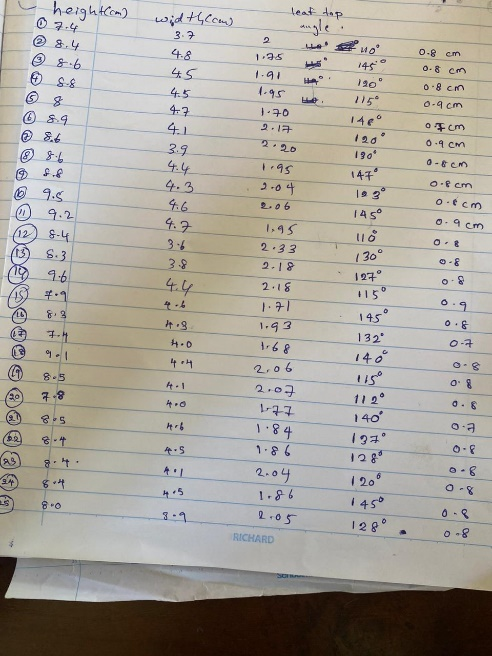 height(cm) width(cm) leaf top angle.
① 7.4 3.7 2 110° 0.8 cm
② 8.4 4.8 1.75 145° 0.8 cm
③ 8.6 4.5 1.91 120° 0.8 cm
④ 8.8 4.5 1.95 115° 0.9 cm
⑤ 8 4.7 1.70 148° 0.7 cm
⑥ 8.9 4.1 2.17 120° 0.9 cm
⑦ 8.6 3.9 2.20 130° 0.8 cm
⑧ 8.6 4.4 1.95 147° 0.8 cm
⑨ 8.8 4.3 2.04 123° 0.8 cm
⑩ 9.5 4.6 2.06 145° 0.9 cm
⑪ 9.2 4.7 1.95 110° 0.8
⑫ 8.4 3.6 2.33 130° 0.8
⑬ 8.3 3.8 2.18 127° 0.8
⑭ 9.6 4.4 2.18 115° 0.9
⑮ 7.9 4.6 1.71 145° 0.8
⑯ 8.3 4.3 1.93 132° 0.7
⑰ 7.4 4.0 1.68 140° 0.8
⑱ 9.1 4.4 2.06 115° 0.8
⑲ 8.5 4.1 2.07 112° 0.8
⑳ 7.8 4.0 1.77 140° 0.7
㉑ 8.5 4.6 1.84 137° 0.8
㉒ 8.4 4.5 1.86 128° 0.8
㉓ 8.4. 4.1 2.04 120° 0.8
㉔ 8.4 4.5 1.86 145° 0.8
㉕ 8.0 3.9 2.05 128° 0.8
RICHARD